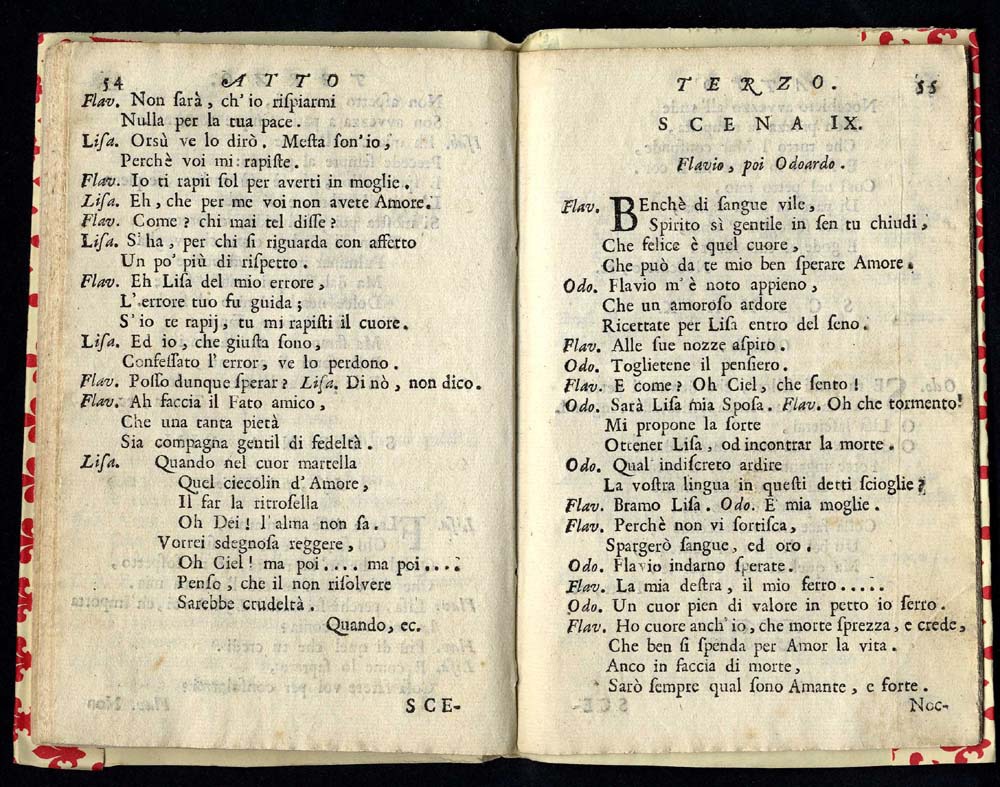 54 ATTO
Flav. Non ſarà, ch' io riſpiarmi
Nulla per la tua pace.
Liſa. Orsù ve lo dirò. Meſta ſon'io,
Perchè voi mi rapiſte.
Flav. Io ti rapii ſol per averti in moglie.
Liſa. Eh, che per me voi non avete Amore.
Flav. Come? chi mai tel diſſe?
Liſa. S'ha, per chi ſi riguarda con affetto
Un po' più di riſpetto.
Flav. Eh Liſa del mio errore,
L'errore tuo fu guida;
S'io te rapij, tu mi rapiſti il cuore.
Liſa. Ed io, che giuſta ſono,
Confeſſato l'error, ve lo perdono.
Flav. Poſſo dunque ſperar? Liſa. Di nò, non dico.
Flav. Ah faccia il Fato amico,
Che una tanta pietà
Sia compagna gentil di fedeltà.
Liſa. Quando nel cuor martella
Quel ciecolin d'Amore,
Il far la ritroſella
Oh Dei! l'alma non ſa.
Vorrei sdegnoſa reggere,
Oh Ciel! ma poi.... ma poi....
Penſo, che il non riſolvere
Sarebbe crudeltà.
Quando, ec.
SCE-
TERZO. 55
SCENA IX.
Flavio, poi Odoardo.
Flav. BEnchè di ſangue vile,
Spirito sì gentile in ſen tu chiudi,
Che felice è quel cuore,
Che può da te mio ben ſperare Amore.
Odo. Flavio m'è noto appieno,
Che un amoroſo ardore
Ricettate per Liſa entro del ſeno.
Flav. Alle ſue nozze aſpiro.
Odo. Toglietene il penſiero.
Flav. E come? Oh Ciel, che ſento!
Odo. Sarà Liſa mia Spoſa. Flav. Oh che tormento!
Mi propone la ſorte
Ottener Liſa, od incontrar la morte.
Odo. Qual' indiſcreto ardire
La voſtra lingua in queſti detti ſcioglie?
Flav. Bramo Liſa. Odo. E' mia moglie.
Flav. Perchè non vi ſortiſca,
Spargerò ſangue, ed oro.
Odo. Flavio indarno ſperate.
Flav. La mia deſtra, il mio ferro.....
Odo. Un cuor pien di valore in petto io ſerro.
Flav. Ho cuore anch'io, che morte ſprezza, e crede,
Che ben ſi ſpenda per Amor la vita.
Anco in faccia di morte,
Sarò ſempre qual ſono Amante, e forte.
Noc-